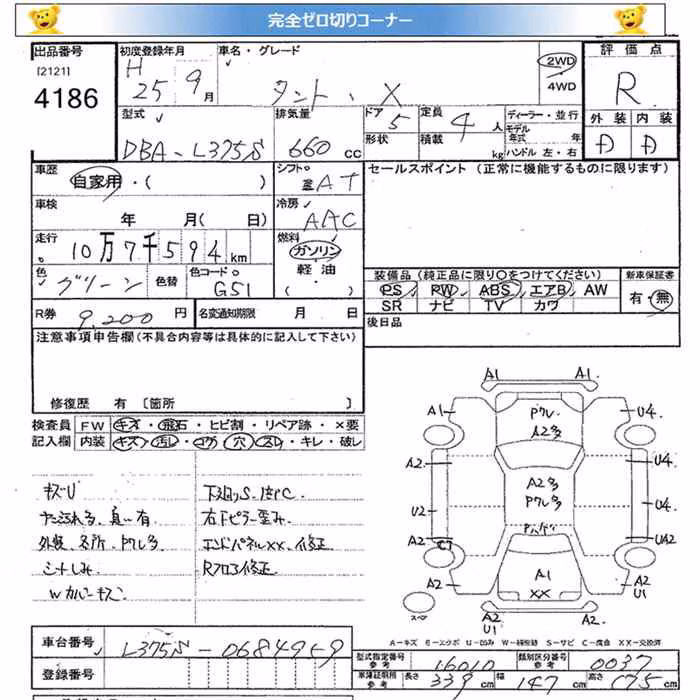 完全ゼロ切りコーナー
出品番号
[2121]
4186
初度登録年月
H 25 9月
車名・グレード
タント、X
2WD
4WD
評価点
R
外装 内装
D D
型式
DBA-L375S
排気量
660 cc
ドア 5
形状
定員 4 人
積載 kg
ディーラー・並行
モデル年式 年
ハンドル 左・右
車歴
自家用・( )
シフト
AT
車検
年 月( 日)
冷房
AAC
走行
10万7千594km
燃料
ガソリン
軽・油
( )
色
グリーン
色替
色コード
G51
R券
9,200円
名変通知期限 月 日
セールスポイント (正常に機能するものに限ります)
装備品 (純正品に限り○をつけてください)
PS PW ABS エアB AW
SR ナビ TV カワ
新車保証書
有・無
後日品
注意事項申告欄(不具合内容等は具体的に記入して下さい)
修復歴 有 〔箇所 〕
検査員
記入欄
FW キズ・飛石・ヒビ割・リペア跡・×要
内装 キズ・汚レ・コゲ・穴・スレ・キレ・破レ
キズU
ヤニ汚れ多、臭い有
外装、各所、Pクレ多
シートしみ
Wカバーキズ
下廻りS・塩PC
右Fピラー歪み
エンドパネルXX、修正
Rフロア修正
A1 A1
Pクレ
A2多
A1 U4
A2 U4
A2多
Pクレ多
U2 U4
A2 C7 UA2
A1
XX
A2 A2
U1
A2
U1
A2
スペア
A-キズ E-エクボ U-凹み W-補修跡 S-サビ C-腐食 XX-交換済
車台番号
L375S-0684959
登録番号
型式指定番号
参考
16010
類別区分番号
参考
0037
車庫証明用
参考
長さ 339 cm
幅 147 cm
高さ 175 cm